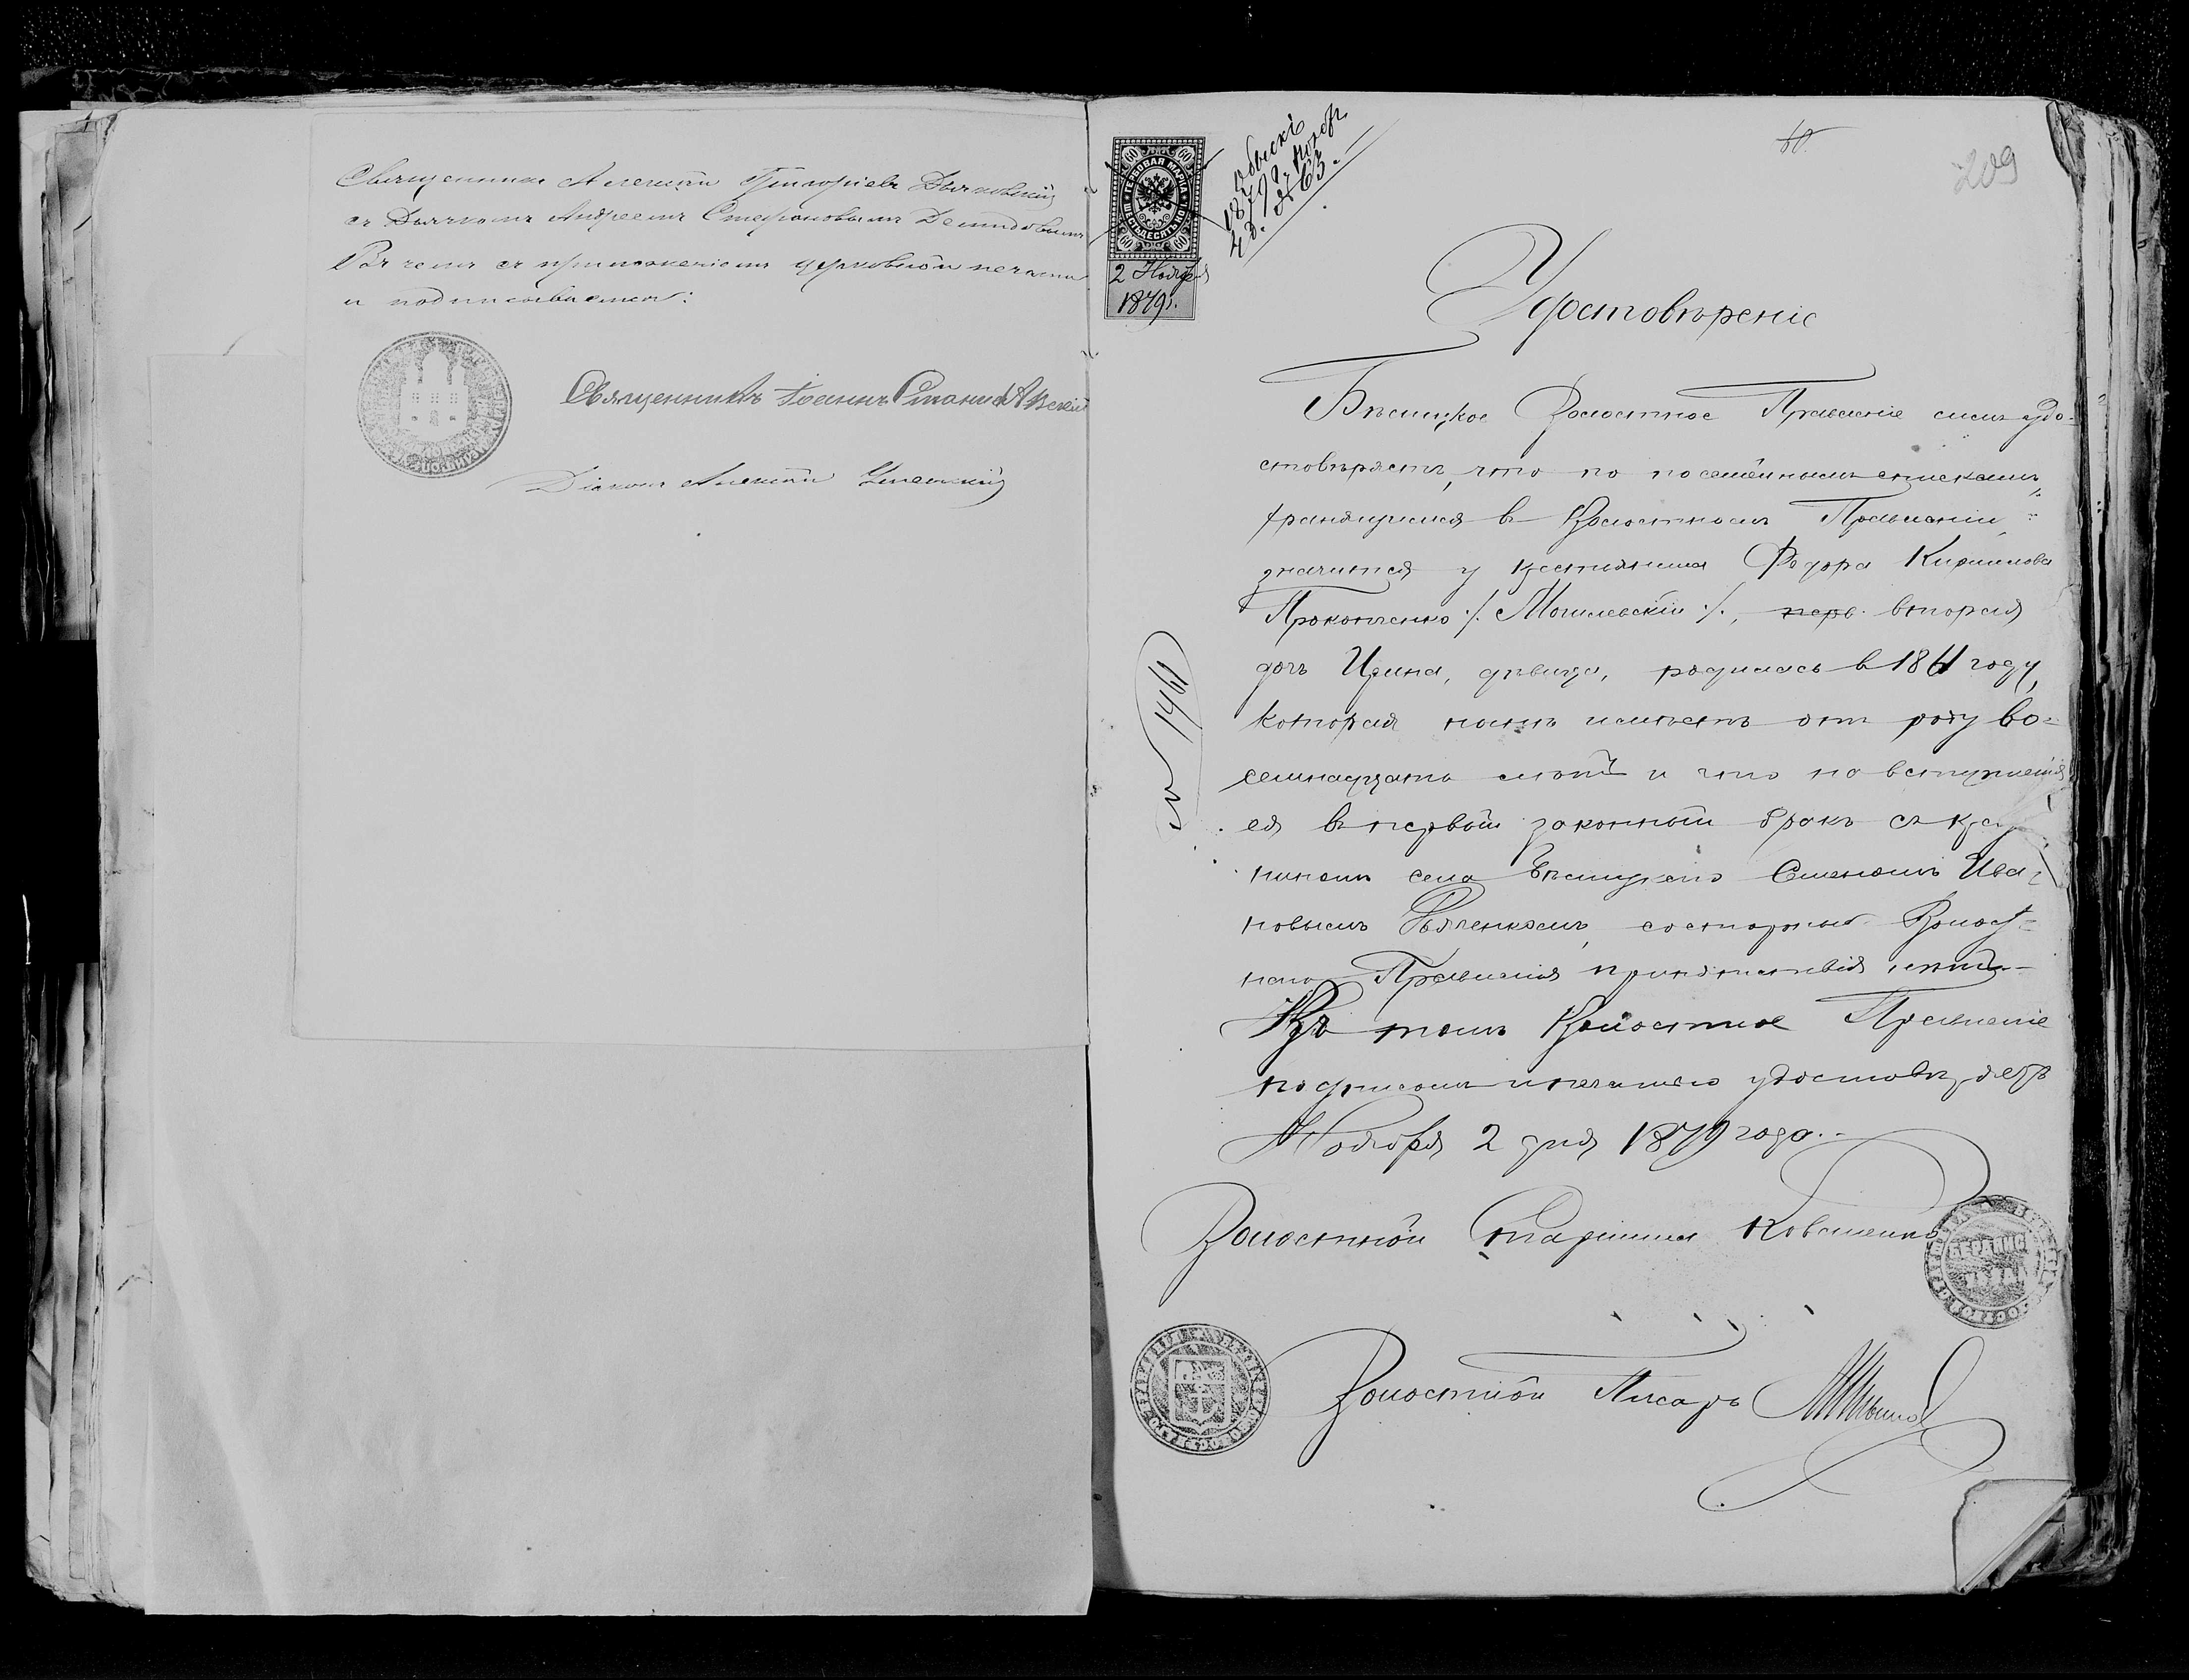 Священникъ Алексѣй Григорьевъ Дьяковскій
съ Дьячкомъ Андреемъ Стефановымъ Демидовымъ
Въ чемъ съ приложеніемъ церковной печати
и подписываемся:
Священникъ Іоаннъ Станиславскій
Діаконъ Алексѣй
60
60
ГЕРБОВАЯ МАРКА
ШЕСТЬДЕСЯТЪ КОП.
60
60
2 Ноября
1879г.
обыскъ
1879 г. нояб.
4 д. № 63.
10.
209
Удостовѣреніе
Волостное Правленіе симъ удо-
стовѣряетъ, что по посемейнымъ спискамъ,
хранящимся въ Волостномъ Правленіи,
значится у крестьянина Федора Кирилова
Прокопченко /. Могилевскій ./, перв. вторая
дочь Ирина, дѣвица, родилась в 1861 году,
которая нынѣ имѣетъ отъ роду во-
семнадцать лѣтъ и что на вступленія
ея въ первый законный бракъ съ
ниномъ села Семеномъ Ива-
новымъ состороны Волост-
наго Правленія препятствія нѣтъ
Въ томъ Волостное Правленіе
подписомъ и печатью удостовѣряетъ
Ноября 2 дня 1879 года.
№ 1461
Волостной Старшина
БЕРДЯНС.
УѢЗДА
Волостной Писарь